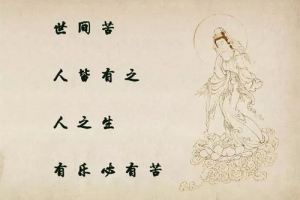 世间苦
人皆有之
人之生
有乐必有苦